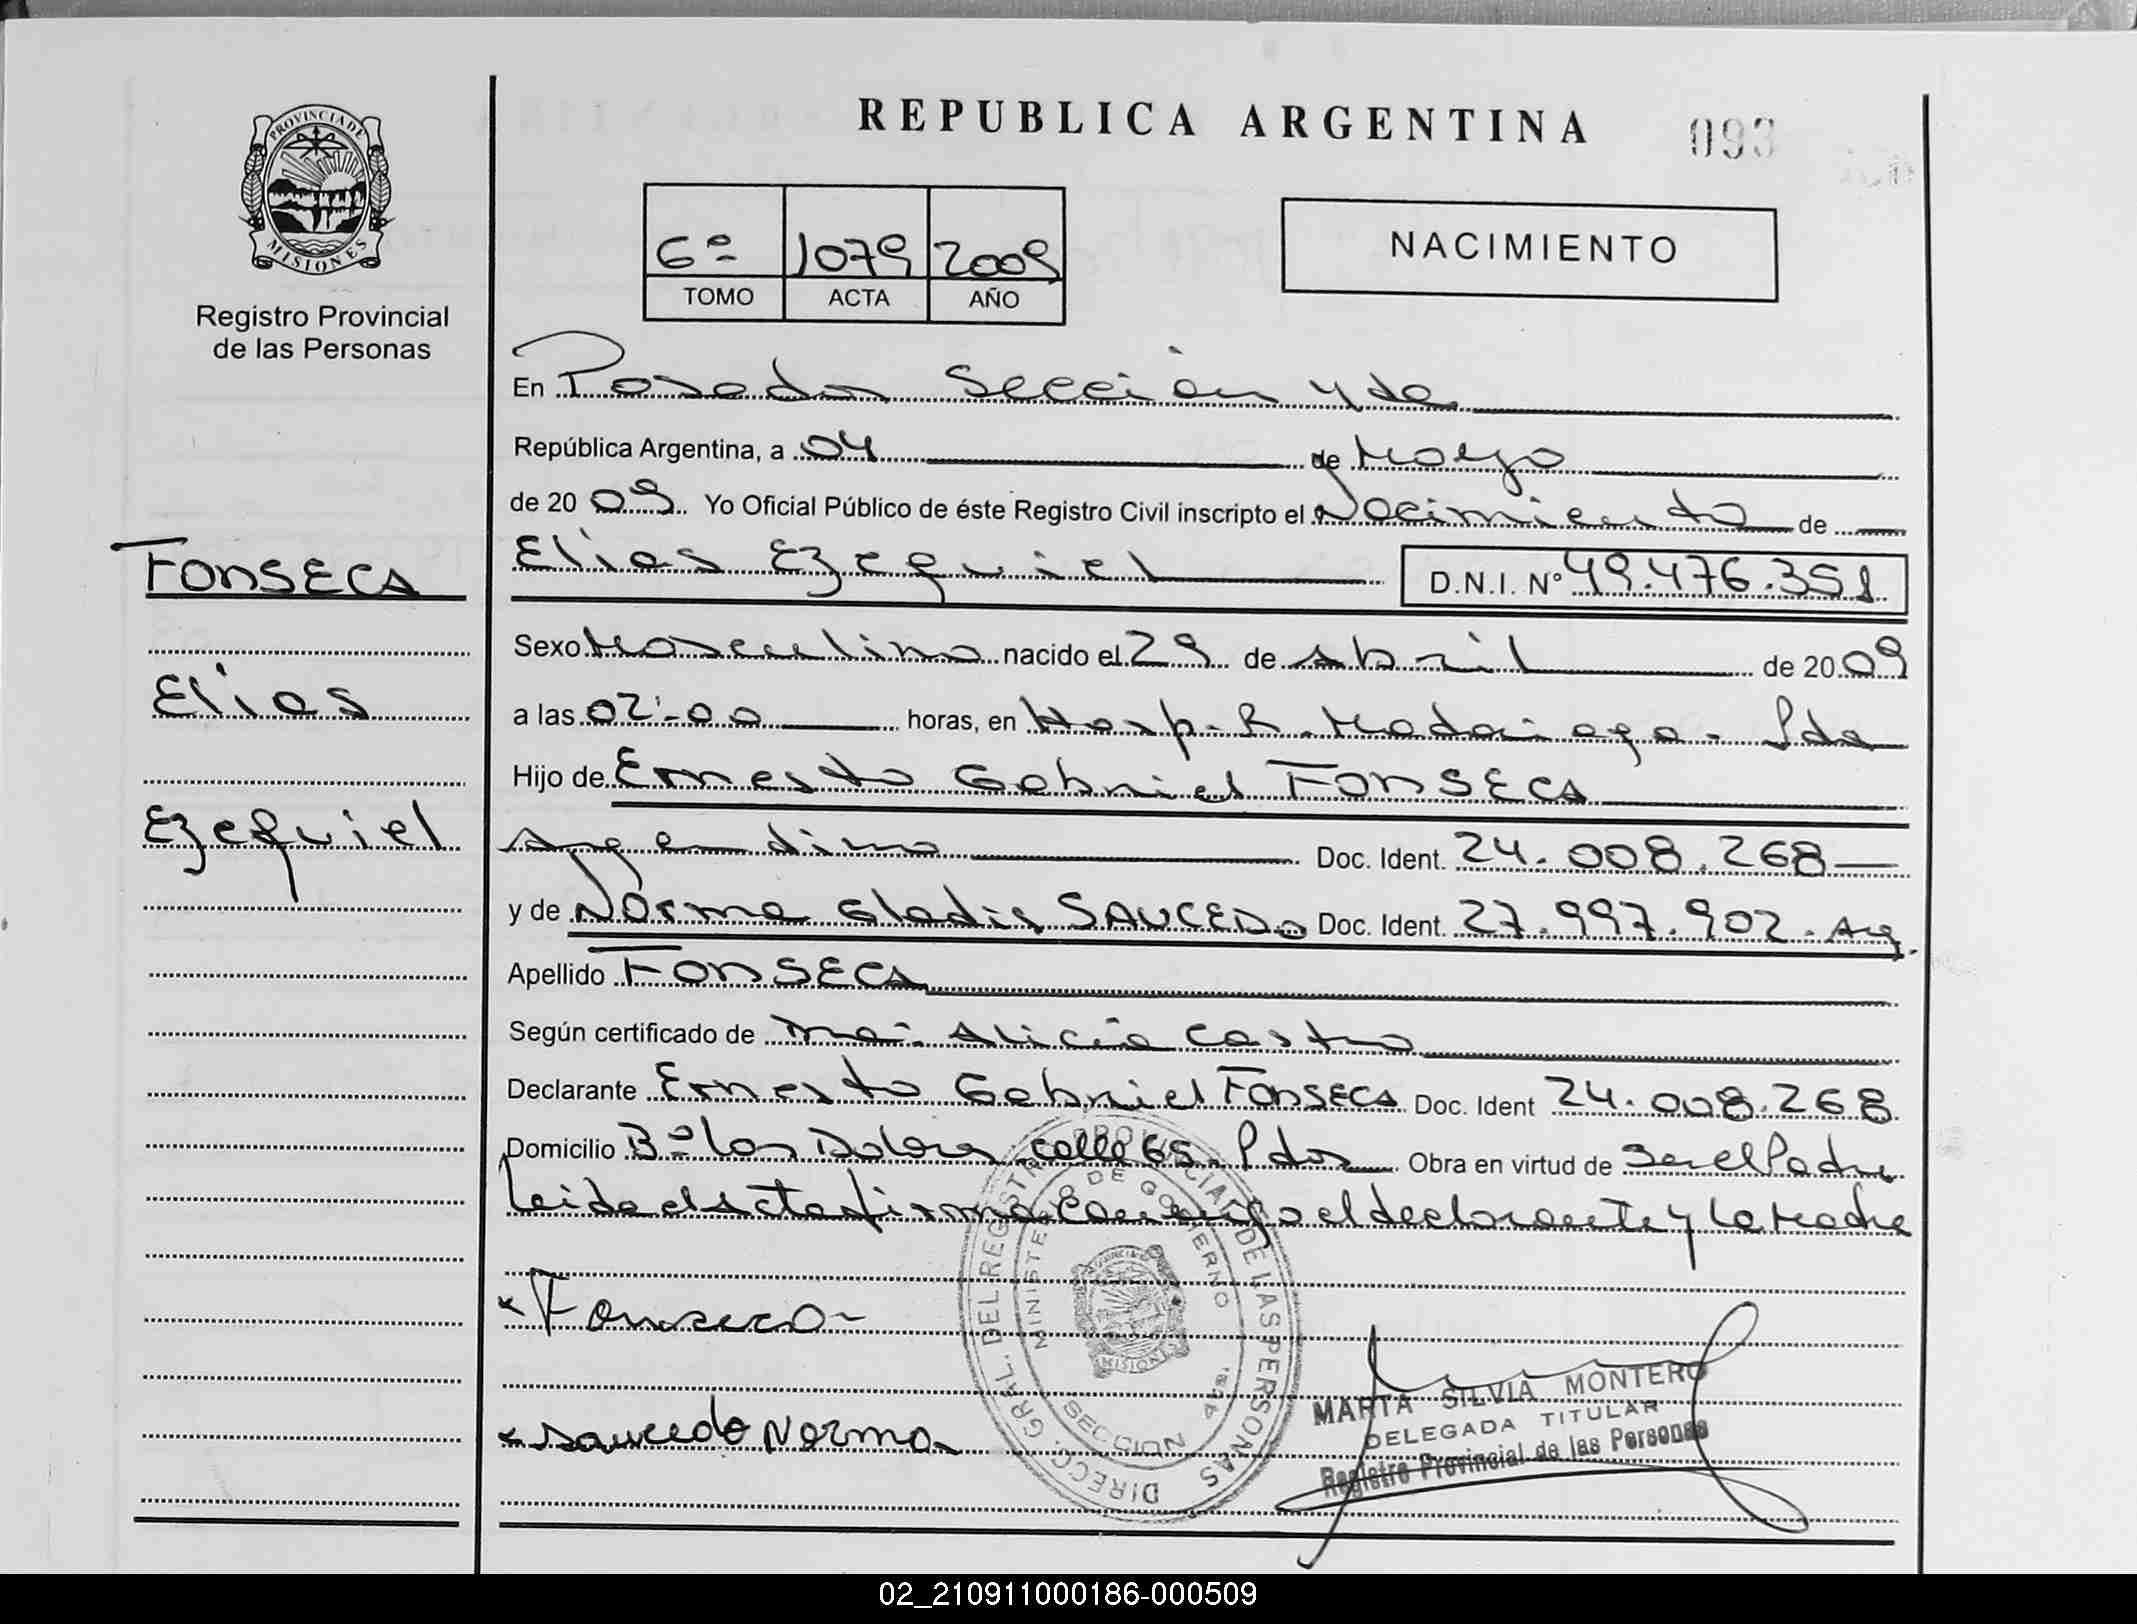 REPUBLICA ARGENTINA
093
PROVINCIA DE
MISIONES
Registro Provincial
de las Personas
6º 1079 2009
TOMO ACTA AÑO
NACIMIENTO
En Posadas Sección 4ta
República Argentina, a 04 de Mayo
de 2009 Yo Oficial Público de éste Registro Civil inscripto el Nacimiento de
Elias Ezequiel D.N.I. Nº 49.476.351
FONSECA
Elias
Ezequiel
Sexo Masculino nacido el 29 de Abril de 2009
a las 02:00 horas, en Hosp. R. Madariaga - Pdas
Hijo de Ernesto Gabriel FONSECA
Argentino Doc. Ident. 24.008.268
y de Norma Gladis SAUCEDO Doc. Ident. 27.997.902. Arg.
Apellido FONSECA
Según certificado de Alicia Castro
Declarante Ernesto Gabriel FONSECA Doc. Ident 24.008.268
Domicilio Bº los Dolores calle 65 Pdas Obra en virtud de Ser el Padre
Leida el Acta firma conmigo el declarante y la Madre
x Fonseca
x Saucedo Norma
DIRECC. GRAL. DEL REGISTRO PROVINCIAL DE LAS PERSONAS
MINISTERIO DE GOBIERNO
SECCION 4ta.
MISIONES
MARTA SILVIA MONTERO
DELEGADA TITULAR
Registro Provincial de las Personas
02_210911000186-000509